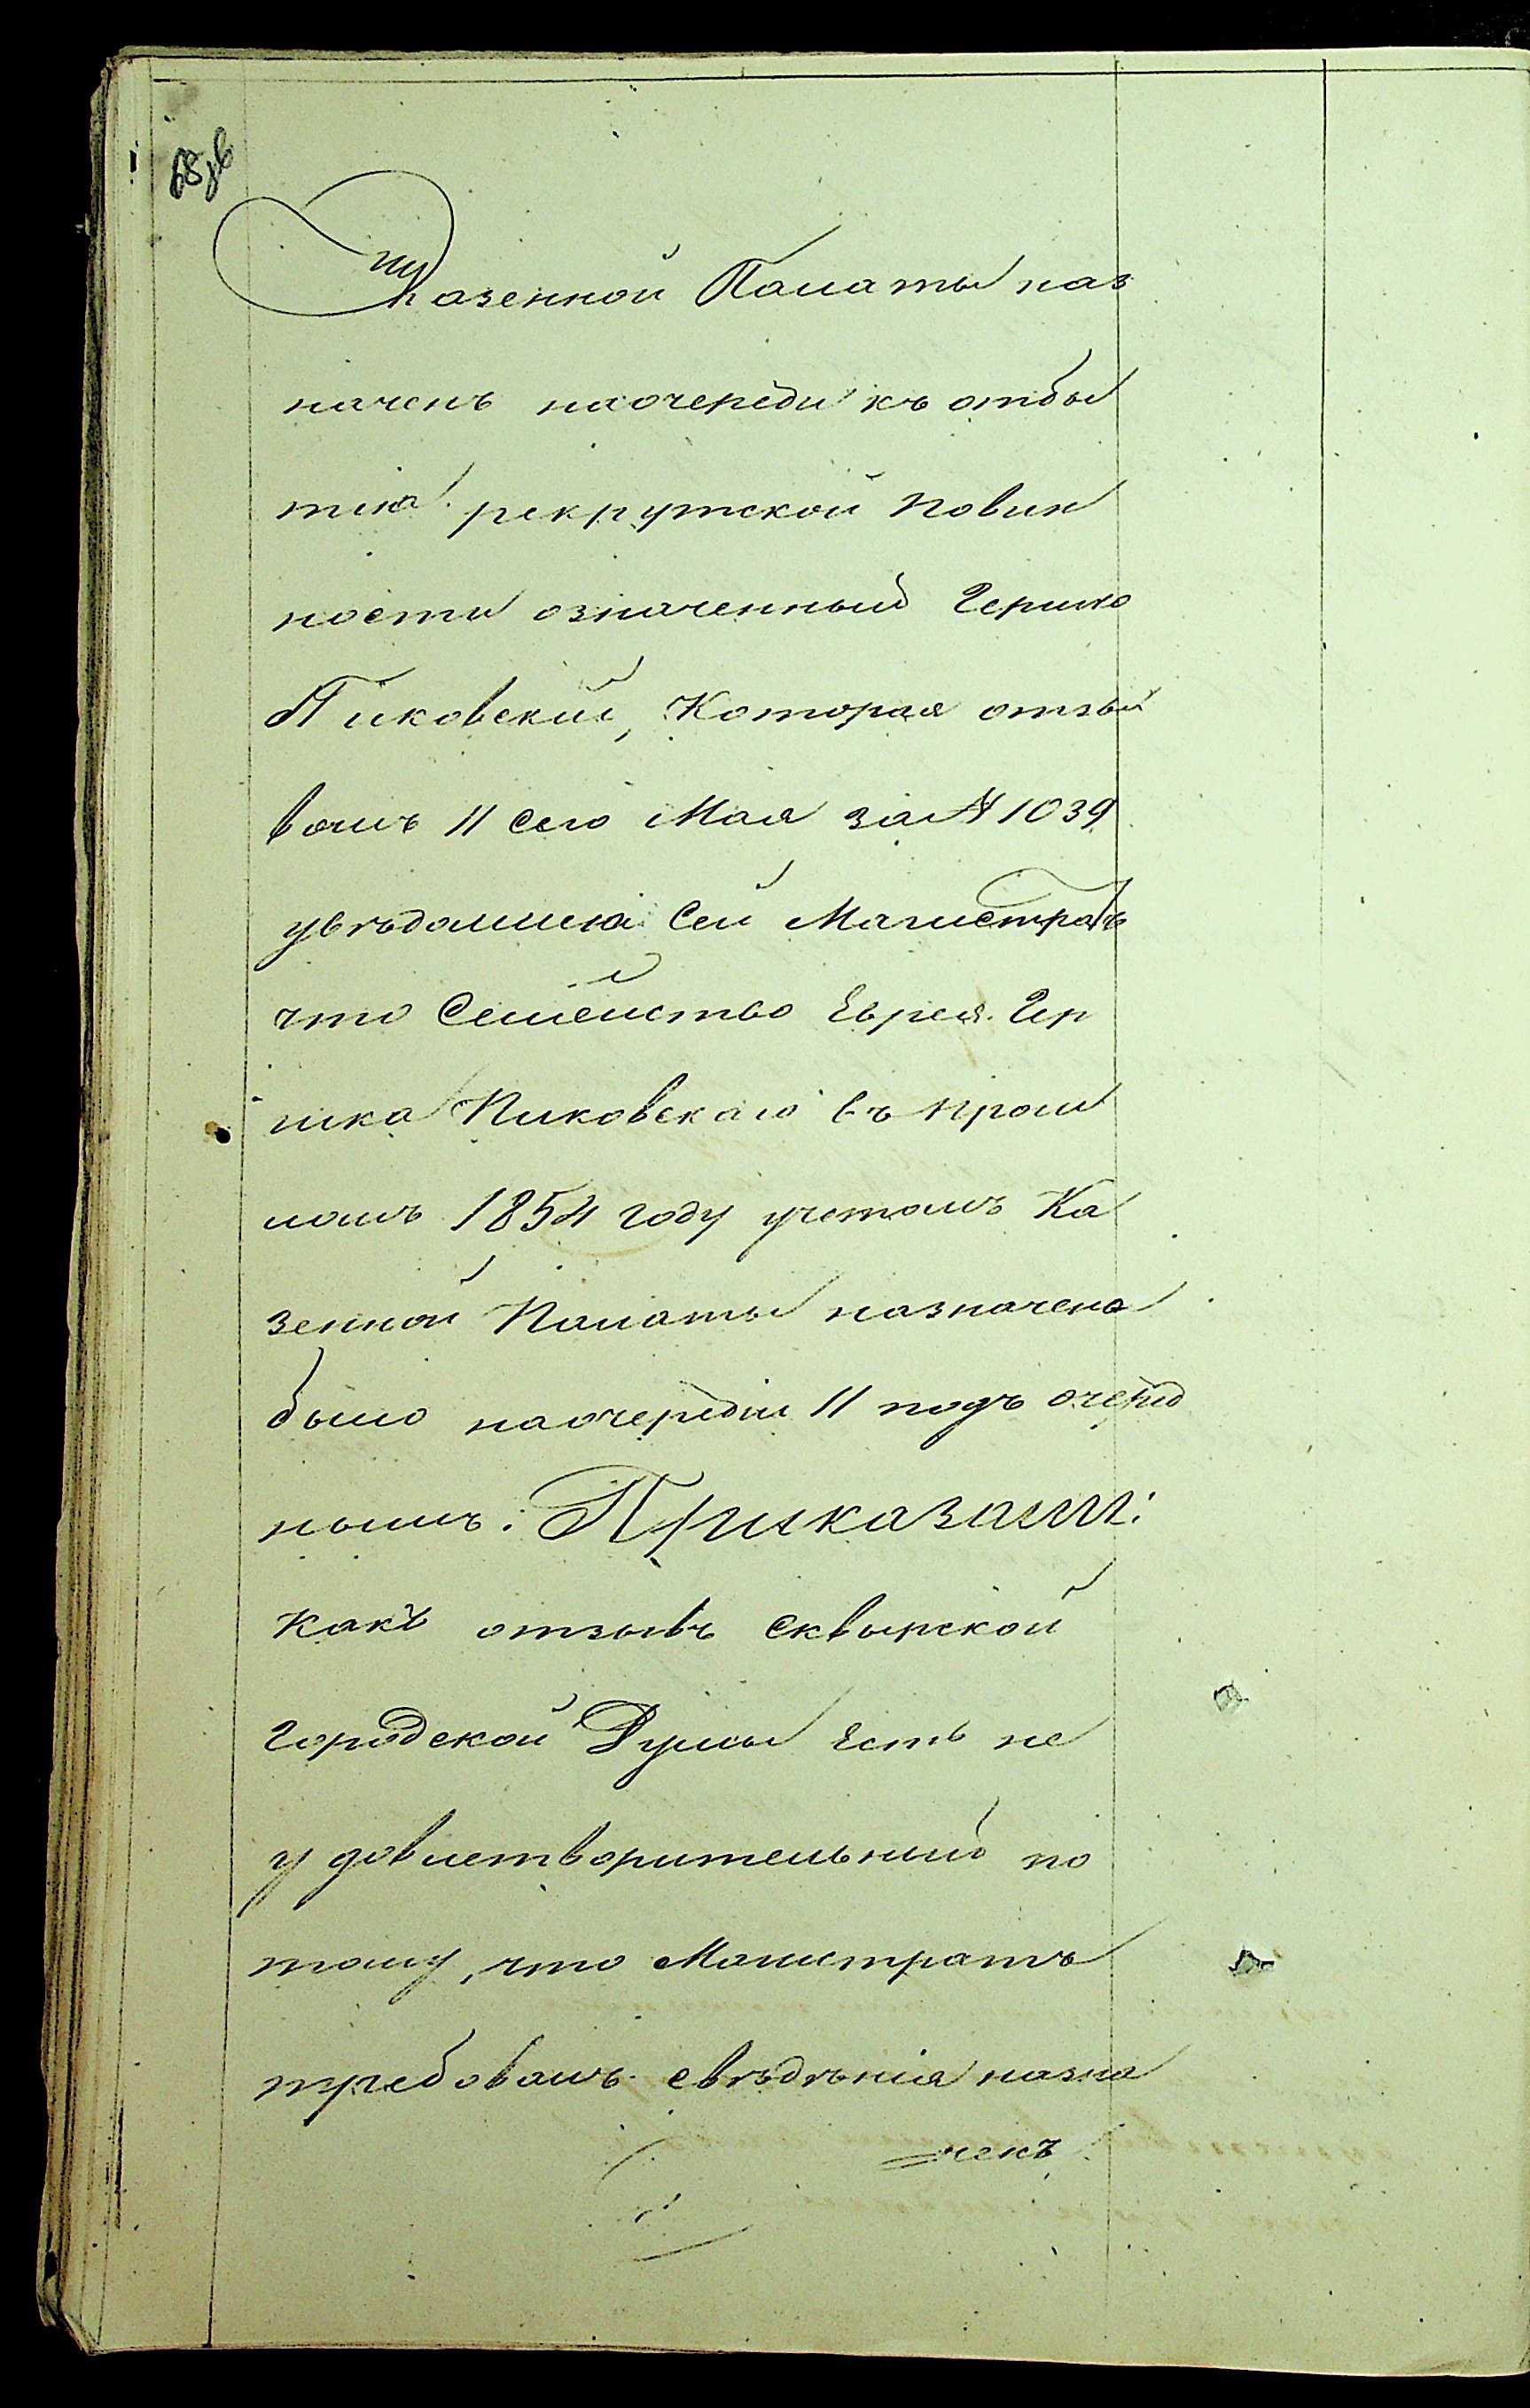 68 об
Казенной Палаты наз
наченъ наочереди къ отбы
тію рекрутской повин
ности означенный Гершко
Пиковскій, Которая отзы
вомъ 11 сего Мая за № 1039
увѣдомила Сей Магистратъ
что Семейство Еврея Гер
шка Пиковскаго въ прош
ломъ 1854 году учетомъ Ка
зенной Палаты назначено
было наочереди 11 подъ очеред
нымъ. Приказали:
какъ отзывъ Сквырской
городской Думы есть не
удовлетворительный по
тому, что Магистратъ
требовалъ свѣдѣнія назна
ченъ